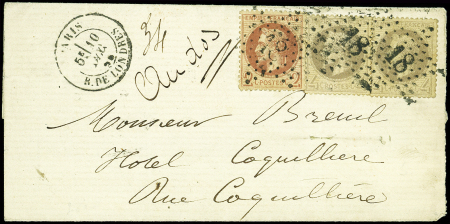 PARIS
5E/ 10
R. DE LONDRES
34
Au dos
18
18
POSTES
Monsieur Breuil
Hotel Coquilliere
Rue Coquillière